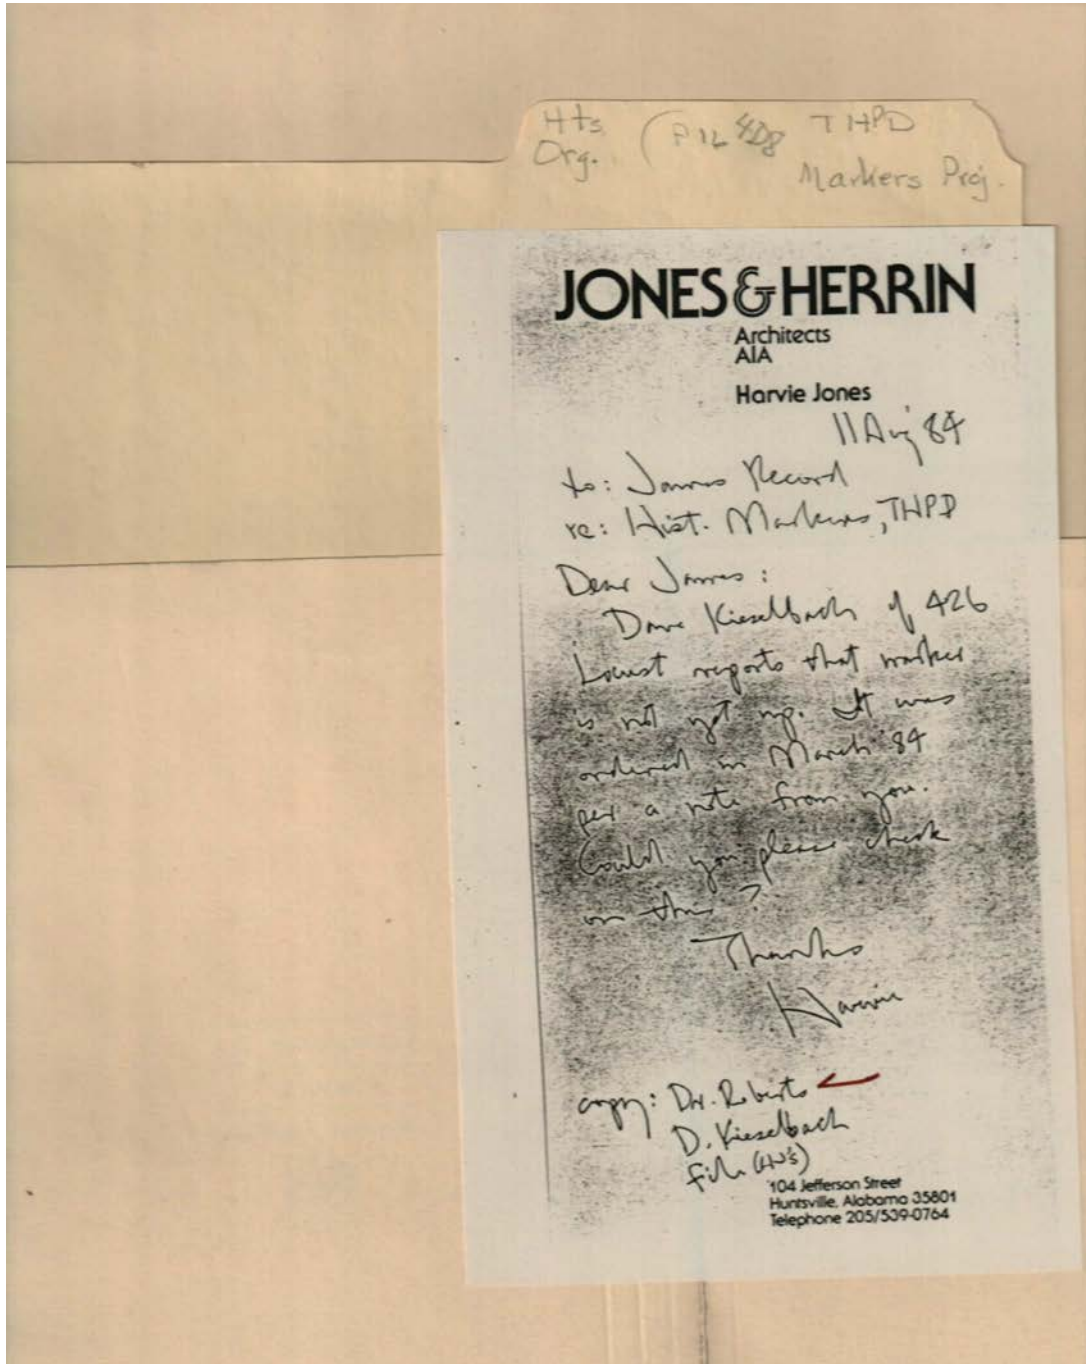 Hts. (P16 4D8 THPD
Org. Markers Proj.
JONES & HERRIN
Architects
AIA
Harvie Jones
11 Aug 84
to: James Record
re: Hist. Markers, THPD
Dear James:
Dave Kieselbach of 426
Locust reports that marker
is not yet up. It was
ordered in March '84
per a note from you.
Could you please check
on this?
Thanks
Harvie
copy: Dr. Roberts
D. Kieselbach
file (HJ's)
104 Jefferson Street
Huntsville, Alabama 35801
Telephone 205/539-0764